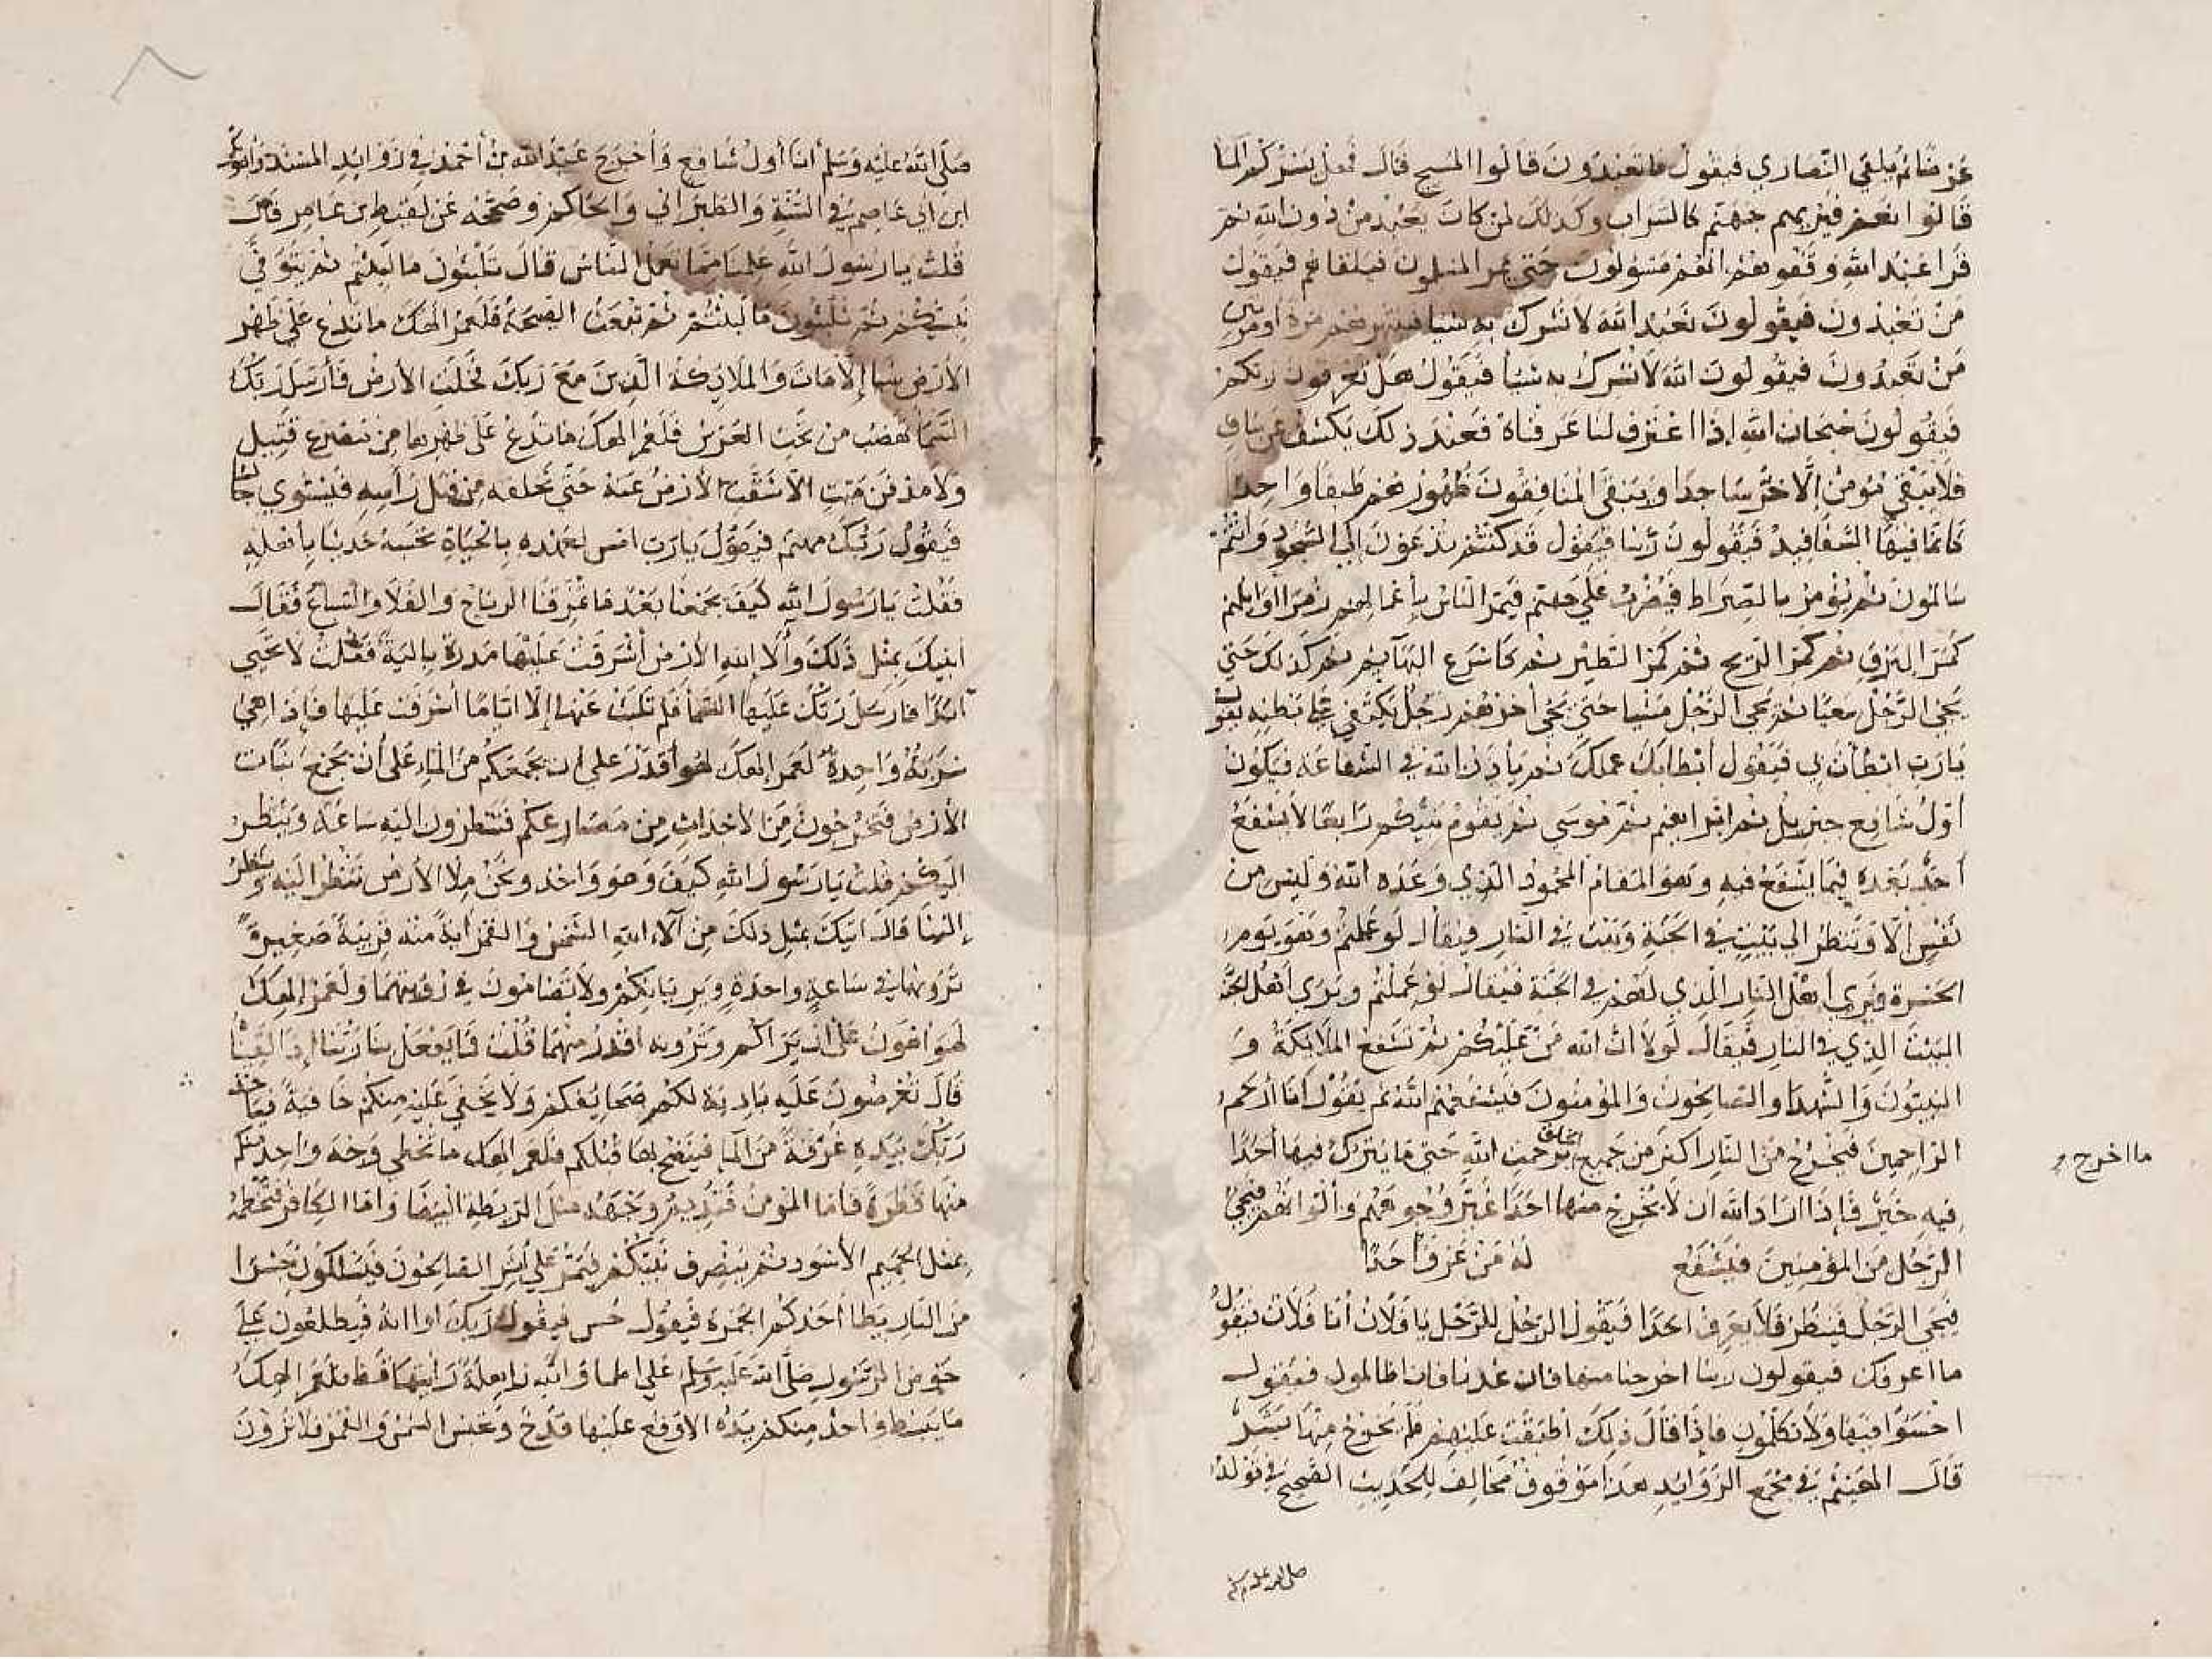 عزير قال ثم يلقى النصارى فيقول ما تعبدون قالوا المسيح قال فهل يسركم الما
قالوا نعم فيريهم جهنم كالسراب وكذلك لمن كان يعبد من دون الله ثم
قرا عبد الله وقفوهم انهم مسؤلون حتى يمر المسلمون فيلقاهم فيقول
من تعبدون فيقولون نعبد الله لا نشرك به شيا فينتهرهم مرة أو مرتين
من تعبدون فيقولون الله لا نشرك به شيأ فيقول هل تعرفون ربكم
فيقولون سبحان الله إذا اعترف لنا عرفناه فعند ذلك يكشف عن ساق
فلا يبقى مؤمن إلا خر ساجدا ويبقى المنافقون ظهورهم طبقا واحدا
كانما فيها السفافيد فيقولون ربنا فيقول قد كنتم تدعون إلى السجود وانتم
سالمون ثم يؤمر بالصراط فيضرب على جهنم فيمر الناس بأعمالهم زمرا اوايلهم
كمر البرق ثم كمر الريح ثم كمر الطير ثم كاسرع البهايم ثم كذلك حتى
يجى الرجل سعيا ثم يجى الرجل مشيا حتى يجى أخرهم رجل يتكفى على بطنه يقول
يا رب ابطأت بى فيقول أبطا بك عملك ثم يأذن الله في الشفاعة فيكون
أول شافع جبريل ثم ابراهيم ثم موسى ثم يقوم نبيكم رابعا لا يشفع
أحد بعده فيما يشفع فيه وهو المقام المحمود الذي وعده الله وليس من
نفس الا وتنظر الى بيت في الجنة وبيت في النار فيقال لو عملتم وهو يوم
الحسرة فيرى أهل النار الذي لهم في الجنة فيقال لو عملتم ويرى أهل الجنة
البيت الذي في النار فيقال لولا ان الله من عليكم ثم تشفع الملايكة و
النبيون والشهدا والصالحون والمؤمنون فيشفعهم الله ثم يقول انا أرحم
الراحمين فيخرج من النار اكثر من جميع الخلق برحمت الله حتى ما يترك فيها أحدا
ما اخرج
فيه خير فإذا اراد الله ان لا يخرج منها احدا غير وجوههم وألوانهم فيجئ
الرجل من المؤمنين فيشفع له من عرف احدا
فيجى الرجل فينظر فلا يعرف احدا فيقول الرجل للرجل يا فلان أنا فلان فيقول
ما اعرفك فيقولون ربنا اخرجنا منها فان عدنا فانا ظالمون فيقول
اخسؤا فيها ولا تكلمون فاذا قال ذلك اطبقت عليهم فلم يخرج منها بشر
قال الهيثمي في مجمع الزوايد هذا موقوف مخالف للحديث الصحيح في قوله
صلى الله عليه وسلم
صلى الله عليه وسلم أنا أول شافع وأخرج عبد الله بن أحمد في زوايد المسند و
ابن ابى عاصم في السنة والطبراني والحاكم وصححه عن لقيط بن عامر قال
قلت يا رسول الله علمنا مما تعلم الناس قال تلبثون ما لبثتم ثم يتوفى
نبيكم ثم تلبثون ما لبثتم ثم تبعث الصيحة فلعمر الهك ما تدع على ظهر
الأرض شيا إلا مات والملايكة الذين مع ربك فخلت الأرض فأرسل ربك
السما تهضب من تحت العرش فلعمر الهك ما تدع على ظهرها من مصرع قتيل
ولا مدفن ميت الا شقت الأرض عنه حتى تخلقه من قبل رأسه فيستوي جالسا
فيقول ربك مهيم فيقول يا رب امس لعهده بالحياة يحسبه حديثا بأهله
فقلت يا رسول الله كيف يجمعنا بعد ما تمزقنا الرياح والبلا والسباع فقال
انبيك بمثل ذلك وألا الله الأرض أشرقت عليها مدرة بالية فقلت لا تحيى
ابدا فارسل ربك عليها السما فلم تلبث عنها إلا اياما أشرفت عليها فإذا هي
شربة واحدة لعمر إلهك لهو أقدر على أن يجمعكم من الماء على أن يجمع نبات
الأرض فتخرجون من الأجداث من مصارعكم فتنظرون اليه ساعة وينظر
اليكم قلت يا رسول الله كيف وهو واحد ونحن ملا الأرض ننظر اليه وينظر
إلينا قال انبيك بمثل ذلك من آلاء الله الشمس والقمر أية منه قريبة صغيرة
ترونهما في ساعة واحدة ويريانكم ولا تضامون في رؤيتهما ولعمر إلهك
لهو اهون على ان يراكم وترونه اقدر منهما قلت فما يفعل بنا ربنا إذا لقيناه
قال تعرضون عليه بادية لكم صحايفكم ولا يخفى عليه منكم خافية فياخذ
ربك بيده غرفة من الما فينضح بها قبلكم فلعمر إلهك ما تخطى وجه واحد منكم
منها قطرة فأما المؤمن فتديم وجهه مثل الريطة البيضا واما الكافر فتخطمه
بمثل الحميم الأسود ثم ينصرف نبيكم فيمر على أثره الصالحون فيسلكون جسرا
من النار يطا أحدكم الجمرة فيقول حس فيقول ربك اوانه فيطلعون على
حوض الرسول صلى الله عليه وسلم على اظما والله ناهلة رايتها قط فلعمر الهك
ما يبسط واحد منكم يده الا وقع عليها قدح وتحبس الشمس والقمر فلا ترون